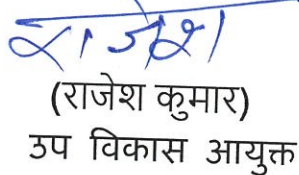 राजेश
(राजेश कुमार)
उप विकास आयुक्त